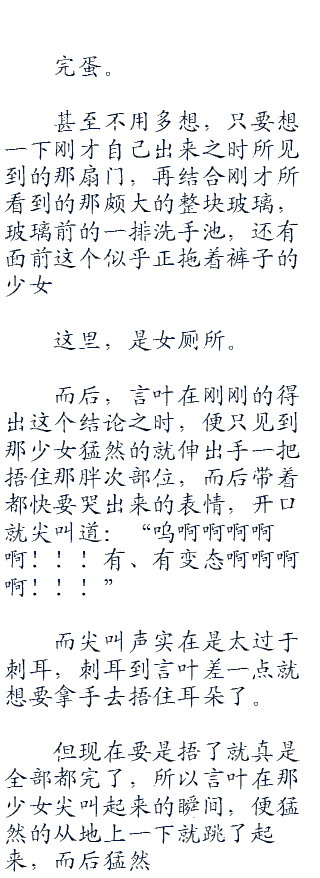 完蛋。
甚至不用多想，只要想
一下刚才自己出来之时所见
到的那扇门，再结合刚才所
看到的那颇大的整块玻璃，
玻璃前的一排洗手池，还有
面前这个似乎正拖着裤子的
少女
这里，是女厕所。
而后，言叶在刚刚的得
出这个结论之时，便只见到
那少女猛然的就伸出手一把
捂住那胖次部位，而后带着
都快要哭出来的表情，开口
就尖叫道：“呜啊啊啊啊
啊！！！有、有变态啊啊啊
啊！！！”
而尖叫声实在是太过于
刺耳，刺耳到言叶差一点就
想要拿手去捂住耳朵了。
但现在要是捂了就真是
全部都完了，所以言叶在那
少女尖叫起来的瞬间，便猛
然的从地上一下就跳了起
来，而后猛然